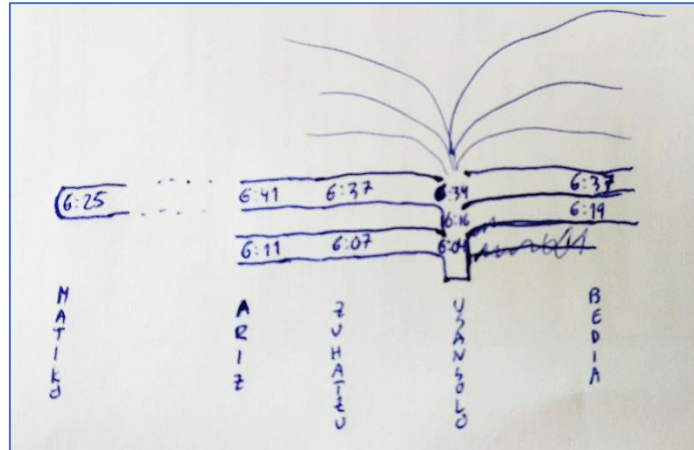 6:41 6:37 6:34 6:37
6:25
6:16 6:19
6:11 6:07
MATIKO
ARIZ
ZUHATZU
USANSOLO
BEDIA